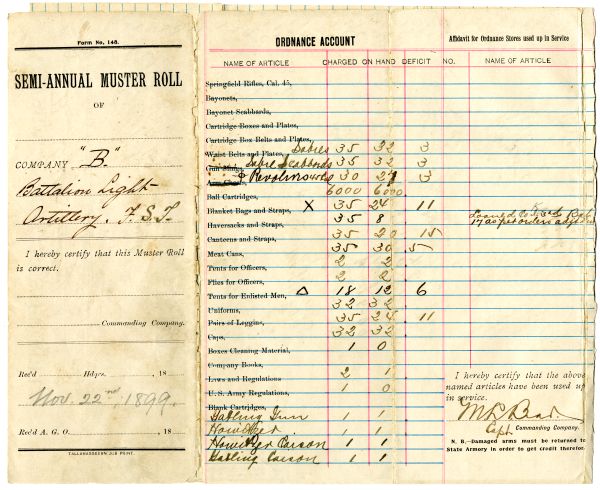 Form No. 148.
SEMI-ANNUAL MUSTER ROLL
OF
COMPANY "B."
Battalion Light
Artillery, F.S.T.
I hereby certify that this Muster Roll
is correct.
Commanding Company.
Rec'd Hdqrs., 18
Nov. 22nd, 1899.
Rec'd A. G. O. 18
TALLAHASSEEAN JOB PRINT.
ORDNANCE ACCOUNT
NAME OF ARTICLE CHARGED ON HAND DEFICIT
Springfield Rifles, Cal. 45,
Bayonets,
Bayonet Scabbards,
Cartridge Boxes and Plates,
Cartridge Box Belts and Plates,
Sabres 35 32 3
Waist Belts and Plates,
Gun Slings, Sabre Scabbards 35 32 3
Revolvers 30 27 3
6000 6000
Ball Cartridges,
X 35 24 11
Blanket Bags and Straps,
35 8
Haversacks and Straps,
35 20 15
Canteens and Straps,
35 30 5
Meat Cans,
2 2
Tents for Officers,
2 2
Flies for Officers,
Δ 18 12 6
Tents for Enlisted Men,
32 32
Uniforms,
35 24 11
Pairs of Leggins,
32 32
Caps,
1 0
Boxes Cleaning Material,
Company Books,
2 1
Laws and Regulations
1 0
U. S. Army Regulations,
Blank Cartridges,
Gatling Gun 1 1
Howitzer 1 1
Howitzer Caison 1 1
Gatling Caison 1 1
Affidavit for Ordnance Stores used up in Service
NO. NAME OF ARTICLE
Loaned to 3rd
17 as per orders
I hereby certify that the above
named articles have been used up
in service.
Capt. Commanding Company.
N. B.—Damaged arms must be returned to
State Armory in order to get credit therefor.